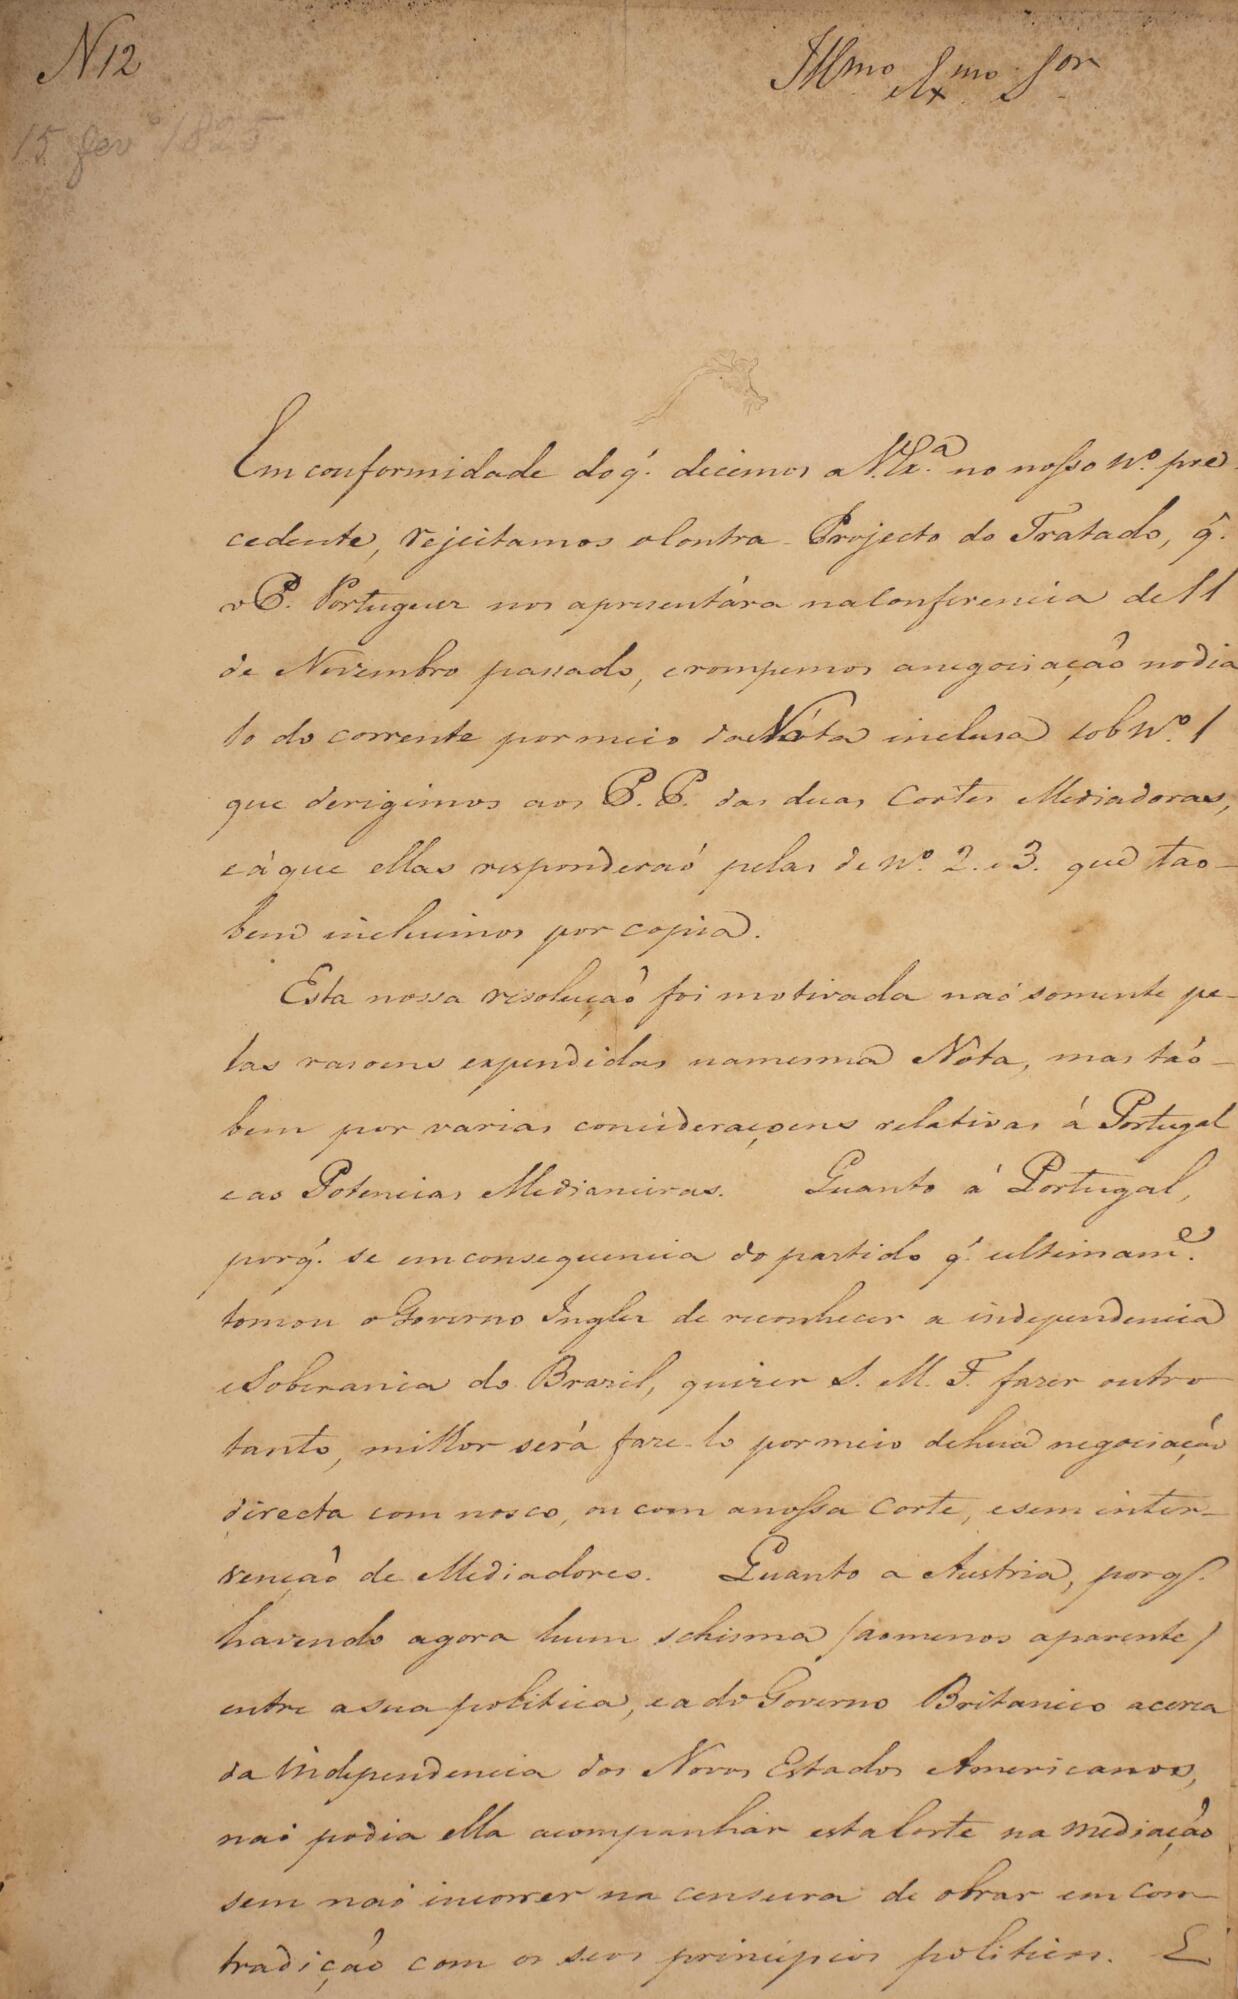 N 12
Illmo Exmo Sor
15 fevo 1825
Em conformidade do q̃. decimos a V. Ex.ª no nosso No. pre-
cedente, rejeitamos o Contra-Projecto do Tratado, q̃.
o P. Portuguez nos apresentára na Conferencia de 11
de Novembro passado, e rompemos a negociaçaõ no dia
10 do corrente por meio da Nóta inclusa sob No. 1
que derigimos aos P.P. das duas Cortes Mediadoras,
e á que ellas responderaó pelas de No. 2. e 3. que tao-
bem incluimos por copia.
Esta nossa resoluçaõ foi motivada naó somente pe-
las rasoens expendidas na mesma Nota, mas taó-
bem por varias consideraçoens relativas á Portugal
e as Potencias Medianeiras. Quanto á Portugal,
porq̃. se em consequencia do partido q̃. ultimam.e
tomou o Governo Inglez de reconhecer a independencia
e Soberania do Brazil, quizer S. M. F. fazer outro
tanto, milhor será faze-lo por meio de huã negociaçaõ
directa com nosco, ou com a nossa Corte, e sem inter-
vençaõ de Mediadores. Quanto a Austria, porq̃.
havendo agora hum schisma /ao menos aparente/
entre a sua politica, e a do Governo Britanico acerca
da independencia dos Novos Estados Americanos,
naó podia ella acompanhar esta Corte na mediaçaõ
sem naó incorrer na censura de obrar em con-
tradiçaõ com os seos principios politicos. E